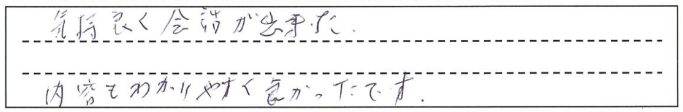 気持良く会話が出来た.
内容もわかりやすく良かったです.